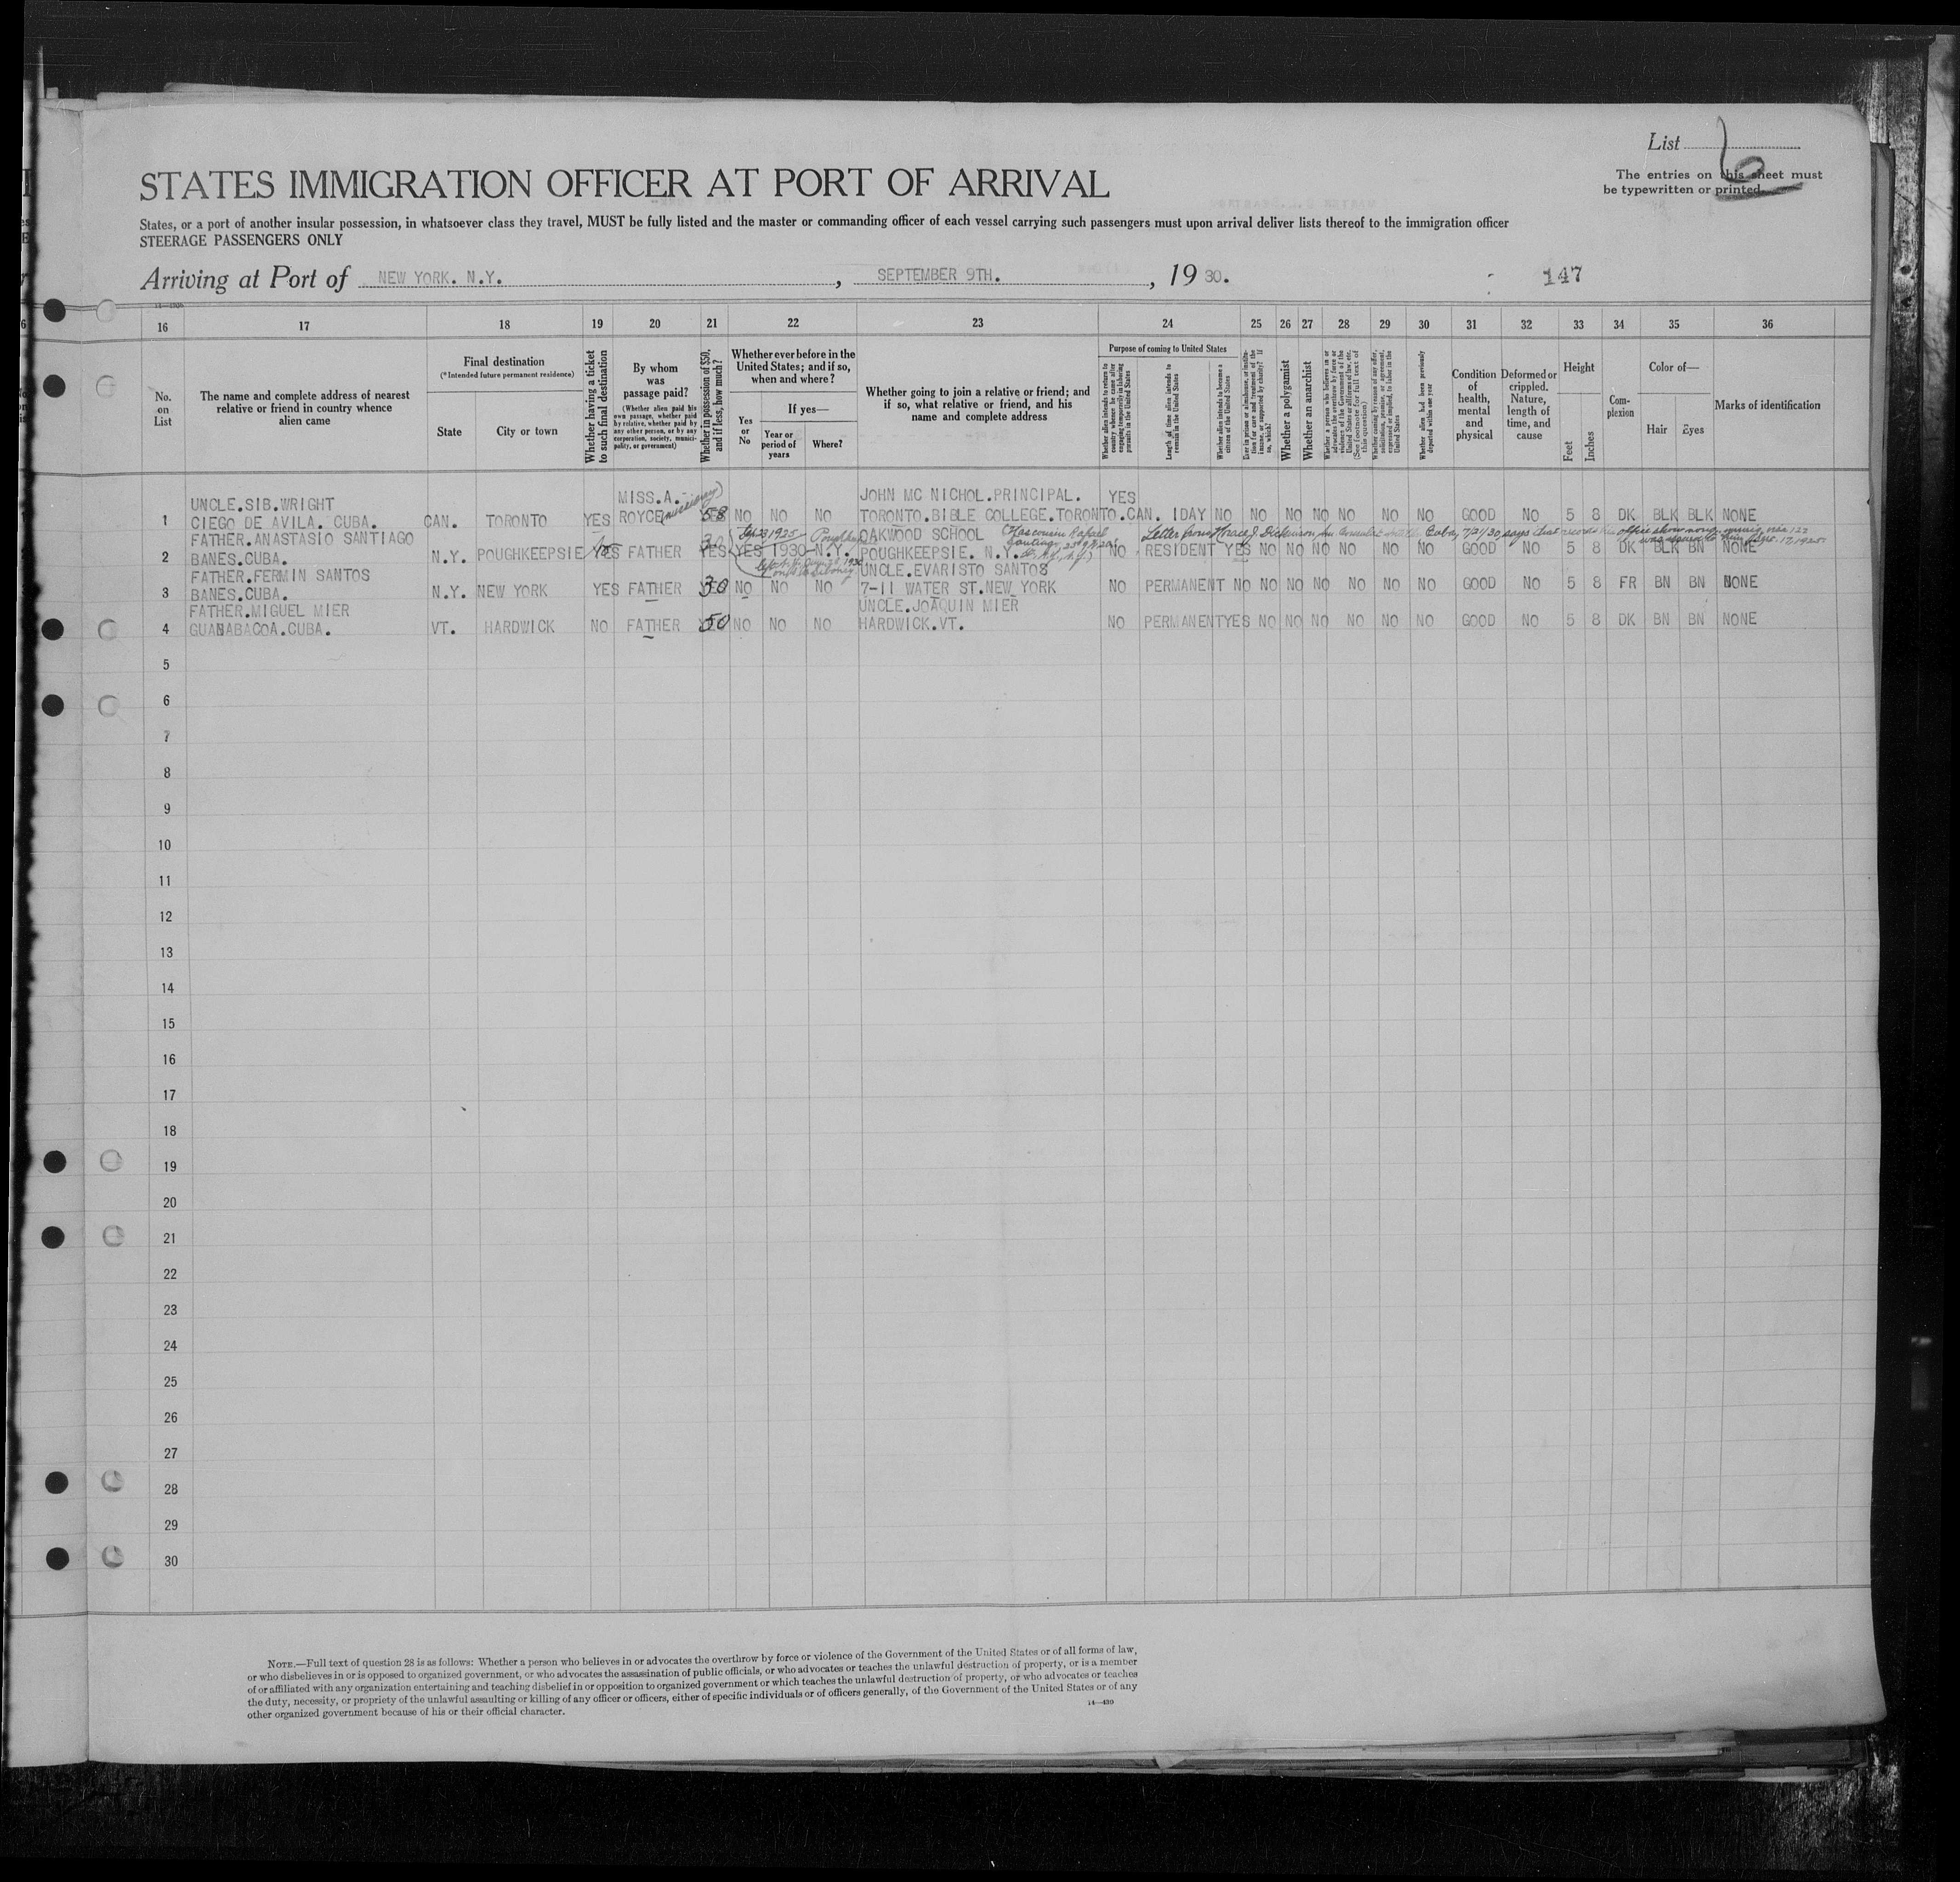 List 6
The entries on this sheet must
be typewritten or printed.
STATES IMMIGRATION OFFICER AT PORT OF ARRIVAL
States, or a port of another insular possession, in whatsoever class they travel, MUST be fully listed and the master or commanding officer of each vessel carrying such passengers must upon arrival deliver lists thereof to the immigration officer
STEERAGE PASSENGERS ONLY
Arriving at Port of NEW YORK. N.Y., SEPTEMBER 9TH., 19 30.
147
16 17 18 19 20 21 22 23 24 25 26 27 28 29 30 31 32 33 34 35 36
No. on List
The name and complete address of nearest relative or friend in country whence alien came
Final destination
(*Intended future permanent residence)
State
City or town
Whether having a ticket to such final destination
By whom was passage paid?
(Whether alien paid his own passage, whether paid by relative, whether paid by any other person, or by any corporation, society, municipality, or government)
Whether in possession of $50, and if less, how much?
Whether ever before in the United States; and if so, when and where?
Yes or No
If yes—
Year or period of years
Where?
Whether going to join a relative or friend; and if so, what relative or friend, and his name and complete address
Purpose of coming to United States
Whether alien intends to return to country whence he came after engaging temporarily in laboring pursuits in the United States
Length of time alien intends to remain in the United States
Whether alien intends to become a citizen of the United States
Whether a polygamist
Whether an anarchist
Whether alien had been previously deported within one year
Condition of health, mental and physical
Deformed or crippled. Nature, length of time, and cause
Height
Feet
Inches
Complexion
Color of—
Hair
Eyes
Marks of identification
UNCLE.SIB.WRIGHT MISS.A. JOHN MC NICHOL.PRINCIPAL. YES
1 CIEGO DE AVILA. CUBA. CAN. TORONTO YES ROYCE 58 NO NO NO TORONTO.BIBLE COLLEGE.TORONTO.CAN. 1DAY NO NO NO NO NO NO NO GOOD NO 5 8 DK BLK BLK NONE
FATHER.ANASTASIO SANTIAGO Sep 23 1925 OAKWOOD SCHOOL
2 BANES.CUBA. N.Y. POUGHKEEPSIE YES FATHER YES YES 1930 N.Y. POUGHKEEPSIE. N.Y. NO RESIDENT YES NO NO NO NO NO NO GOOD NO 5 8 DK BLK BN NONE
FATHER.FERMIN SANTOS UNCLE.EVARISTO SANTOS
3 BANES.CUBA. N.Y. NEW YORK YES FATHER 30 NO NO NO 7-11 WATER ST.NEW YORK NO PERMANENT NO NO NO NO NO NO NO GOOD NO 5 8 FR BN BN NONE
FATHER.MIGUEL MIER UNCLE.JOAQUIN MIER
4 GUANABACOA.CUBA. VT. HARDWICK NO FATHER 50 NO NO NO HARDWICK.VT. NO PERMANENT YES NO NO NO NO NO NO GOOD NO 5 8 DK BN BN NONE
5
6
7
8
9
10
11
12
13
14
15
16
17
18
19
20
21
22
23
24
25
26
27
28
29
30
NOTE.—Full text of question 28 is as follows: Whether a person who believes in or advocates the overthrow by force or violence of the Government of the United States or of all forms of law,
or who disbelieves in or is opposed to organized government, or who advocates the assassination of public officials, or who advocates or teaches the unlawful destruction of property, or is a member
of or affiliated with any organization entertaining and teaching disbelief in or opposition to organized government or which teaches the unlawful destruction of property, or who advocates or teaches
the duty, necessity, or propriety of the unlawful assaulting or killing of any officer or officers, either of specific individuals or of officers generally, of the Government of the United States or of any
other organized government because of his or their official character.
14—430